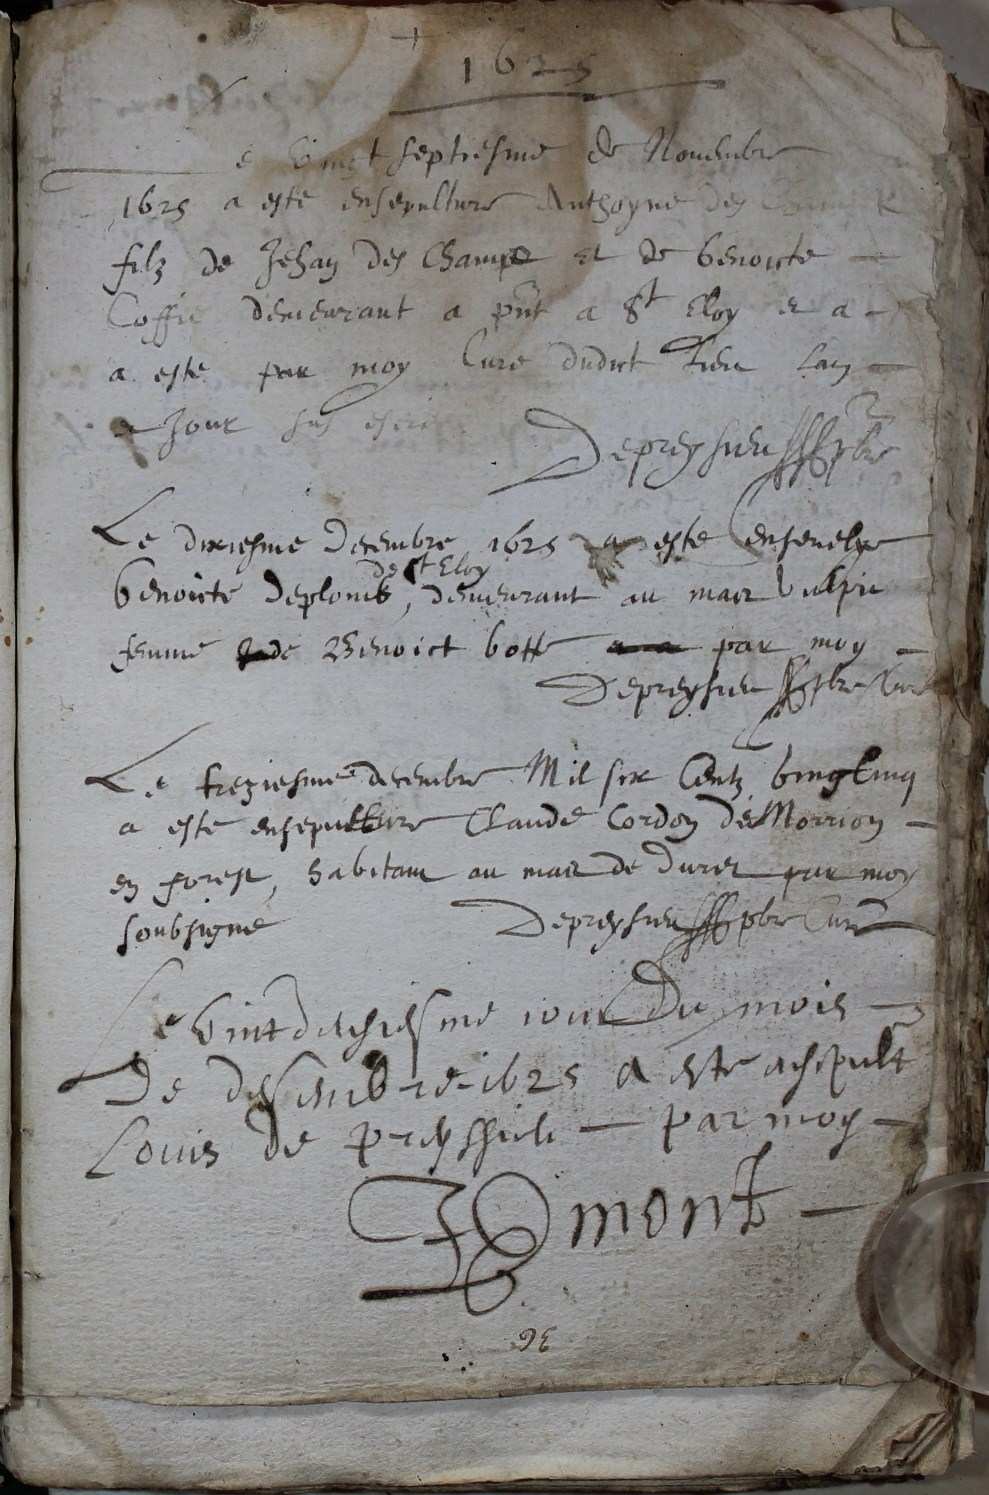 1625
e vingt septiesme de Novembre
1625 a este ensepulture Anthoyne des
filz de Jehan des Champs et de benoiste
Coffie demeurant a pnt a St Eloy et a
a este par moy Cure dudict lieu l'an
e Jour sus escri
Depreysieu pbre
Le dixiesme decembre 1625 a este ensevelye
de St Eloy
benoicte deplomb, demeurant au mas vulpie
femme de Benoict bott par moy
Depreysieu pbre Cure
Le treziesme decembre Mil six Centz vingt cinq
a este ensepulture Claude Cordon de Morrion
en forest, habitant au mas de Duret par moy
soubsigné
Depreysieu pbre Curé
Le vint du mois
De desembre 1625 a este asepult
Louis de preyssieu par moy
mont
36